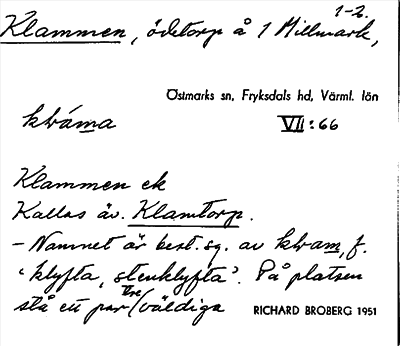 1-2.
Klammen, ödetorp å 1 Millmark,
Östmarks sn, Fryksdals hd, Värml. län
klráma
VII: 66
Klammen ek
Kallas äv. Klamtorp.
- Namnet är best. sg. av klram, f.
'klyfta, stenklyfta'. På platsen
stå ett par tre (väldiga
RICHARD BROBERG 1951